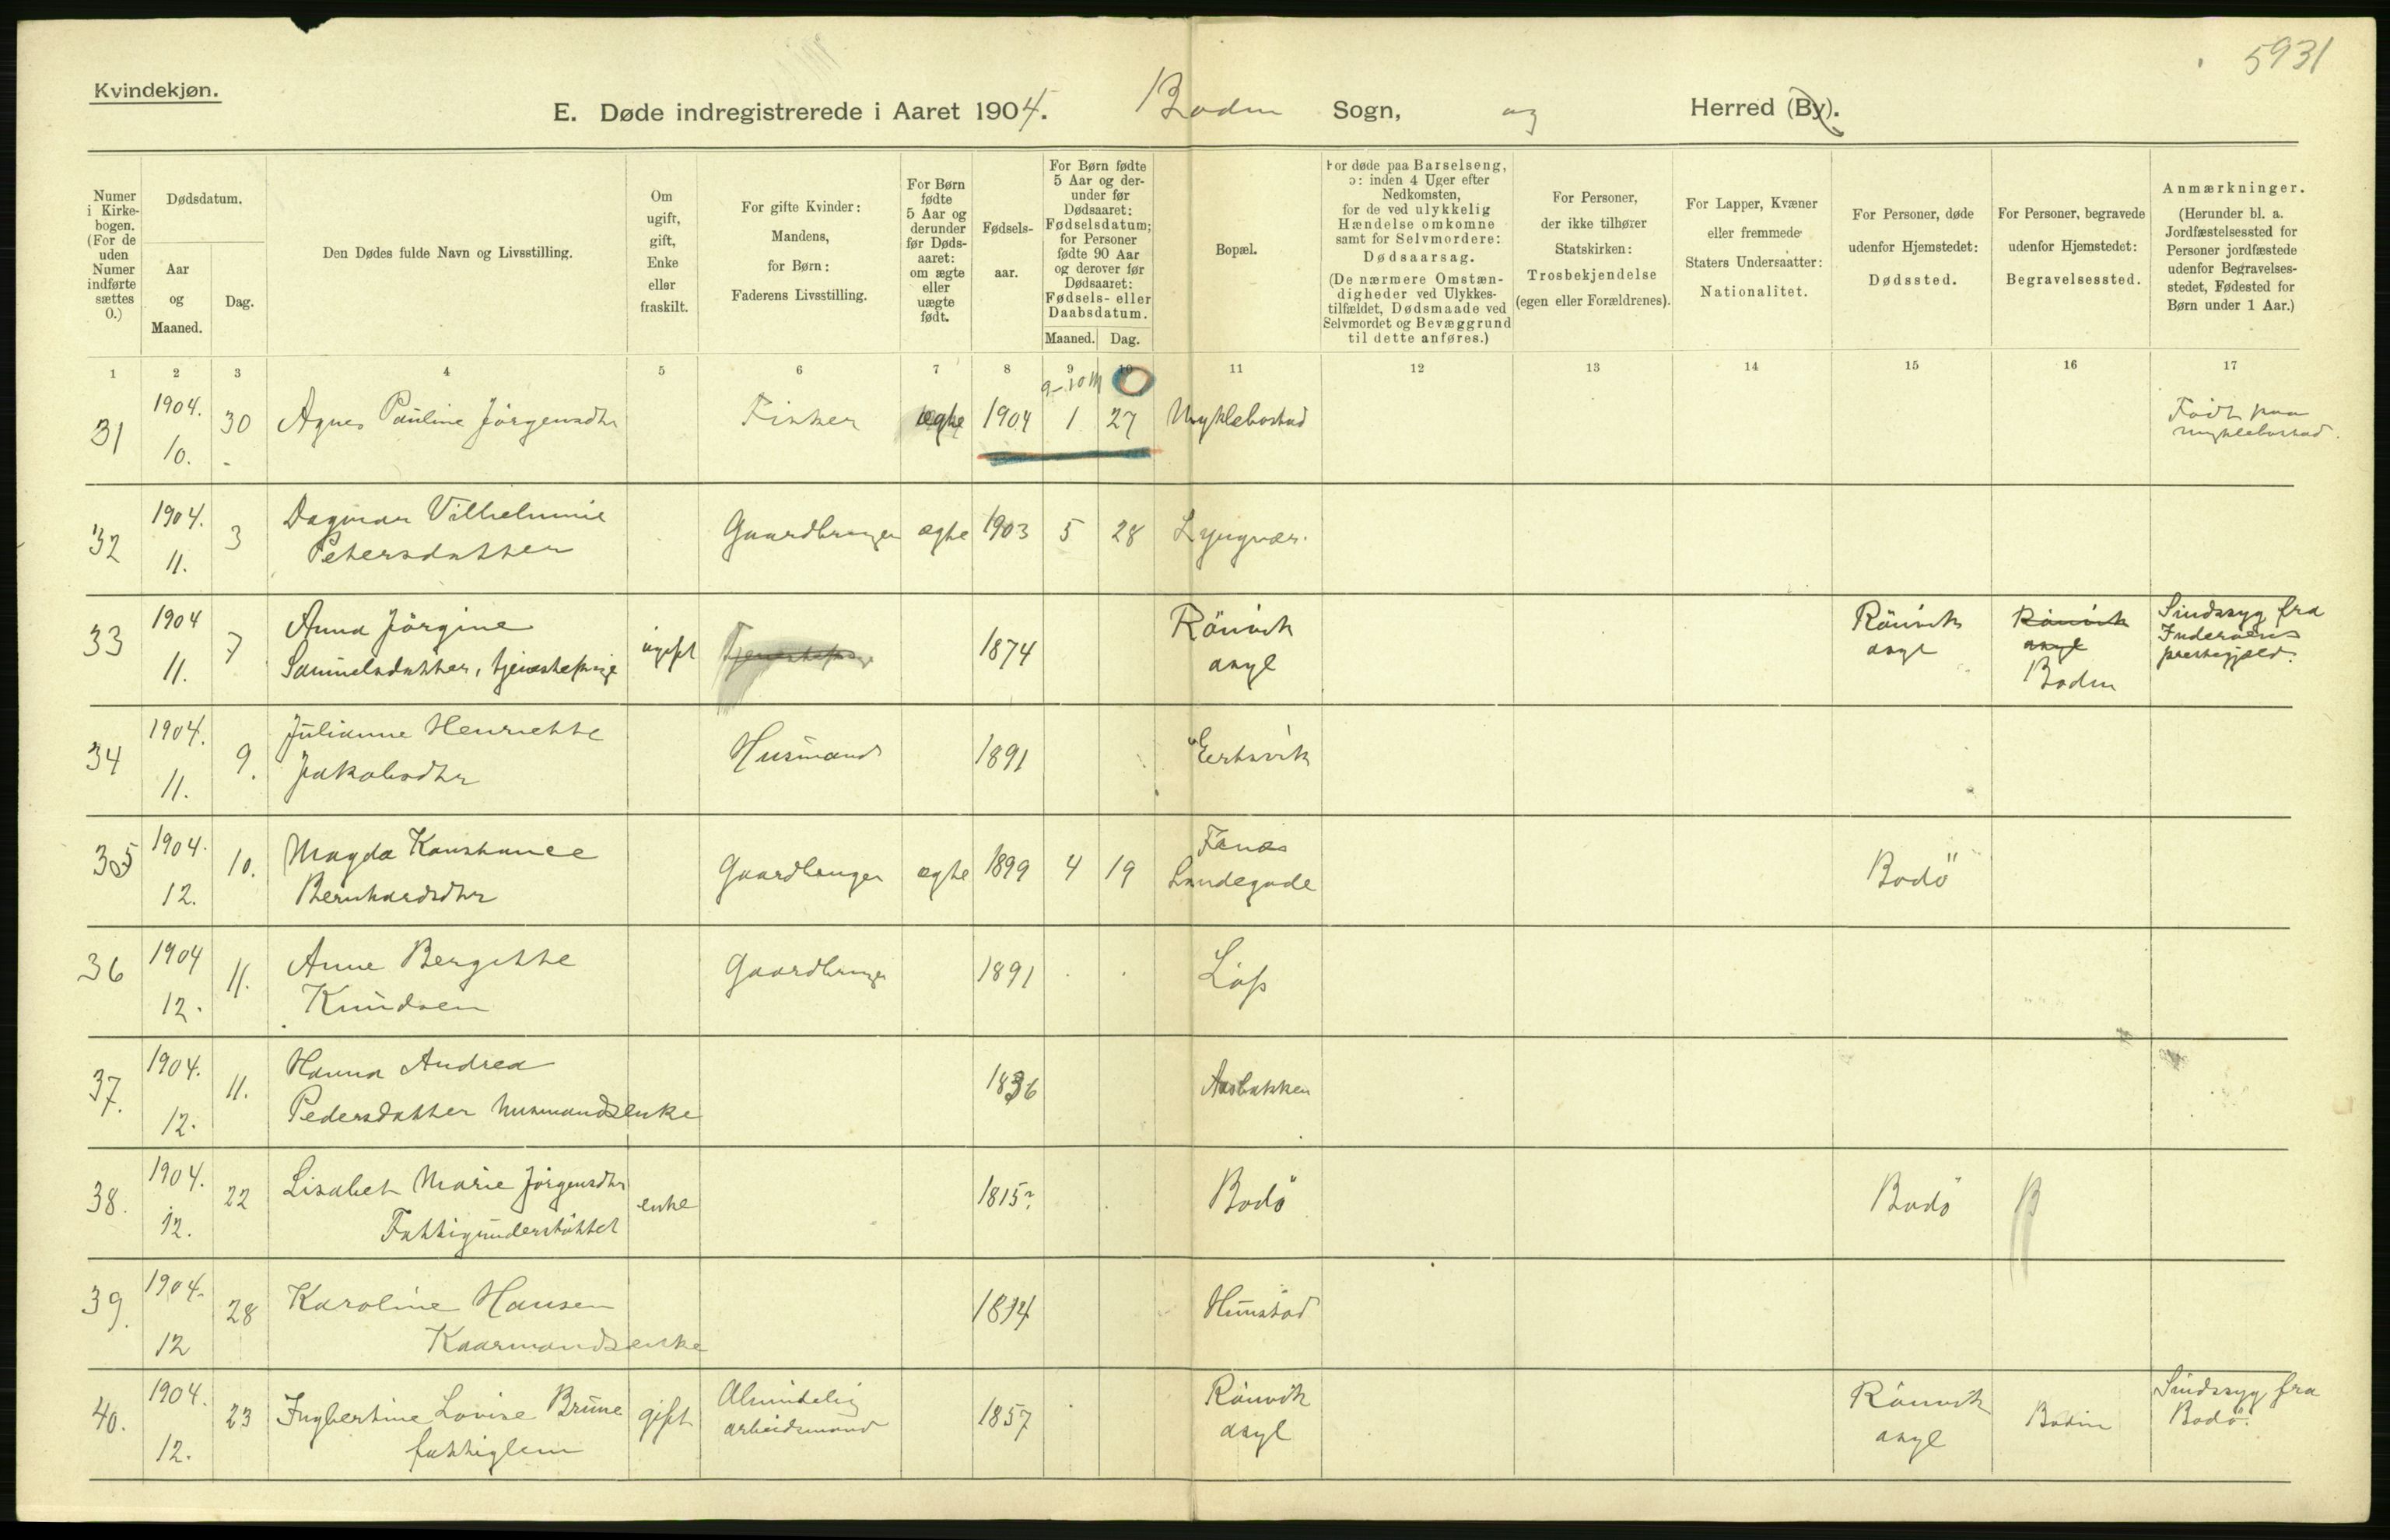 5931
Kvindekjøn.
E. Døde indregistrerede i Aaret 1904. Bodin Sogn, og Herred (By).
Numer i Kirke-bogen. (For de uden Numer indførte sættes 0.)
Dødsdatum.
Aar og Maaned.
Dag.
Den Dødes fulde Navn og Livsstilling.
Om ugift, gift, Enke eller fraskilt.
For gifte Kvinder: Mandens, for Børn: Faderens Livsstilling.
For Børn fødte 5 Aar og derunder før Døds-aaret: om ægte eller uægte født.
Fødsels-aar.
For Børn fødte 5 Aar og der-under før Dødsaaret: Fødselsdatum; for Personer fødte 90 Aar og derover før Dødsaaret: Fødsels- eller Daabsdatum.
Maaned. Dag.
Bopæl.
For døde paa Barselseng, ɔ: inden 4 Uger efter Nedkomsten, for de ved ulykkelig Hændelse omkomne samt for Selvmordere: Dødsaarsag.
(De nærmere Omstæn-digheder ved Ulykkes-tilfældet, Dødsmaade ved Selvmordet og Bevæggrund til dette anføres.)
For Personer, der ikke tilhører Statskirken: Trosbekjendelse (egen eller Forældrenes).
For Lapper, Kvæner eller fremmede Staters Undersaatter: Nationalitet.
For Personer, døde udenfor Hjemstedet: Dødssted.
For Personer, begravede udenfor Hjemstedet: Begravelsessted.
Anmærkninger. (Herunder bl. a. Jordfæstelsessted for Personer jordfæstede udenfor Begravelses-stedet, Fødested for Børn under 1 Aar.)
1 2 3 4 5 6 7 8 9 10 11 12 13 14 15 16 17
9-10 M 0
31 1904. 10. 30 Agnes Pauline Jörgensdtr Fisker ægte 1904 1 27 Myklebostad Födt paa Myklebostad.
32 1904. 11. 3 Dagmar Vilhelmine Petersdatter Gaardbruger ægte 1903 5 28 Lyngvær.
33 1904 11. 7 Anna Jörgine Samuelsdatter, tjenestepige ugift Tjenestepige 1874 Rönvik asyl Rönvik asyl Rönvik asyl Bodin Sindssyg fra Inderøens prestegjæld.
34 1904. 11. 9. Julianne Henriette Jakobsdtr Husmand 1891 Eertsvik
35 1904. 12. 10. Magda Konstance Bernhardsdtr Gaardbruger ægte 1899 4 19 Fenes Landegode Bodö
36 1904 12. 11. Anne Bergitte Knudsen Gaardbruger 1891 Löp
37. 1904. 12. 11. Hanna Andrea Pedersdatter husmandsenke 1836 Aasbakken
38. 1904. 12. 22 Lisabet Marie Jörgensdtr Fattigunderstöttet enke 1815? Bodö Bodö B
39. 1904. 12 28 Karoline Hansen Kaarmandsenke 1814 Hunstad
40. 1904. 12. 23 Ingbertine Lovise Brune fattiglem gift Almindelig arbeidsmand 1857 Rönvik asyl Rönvik asyl Bodin Sindssyg fra Bodö.